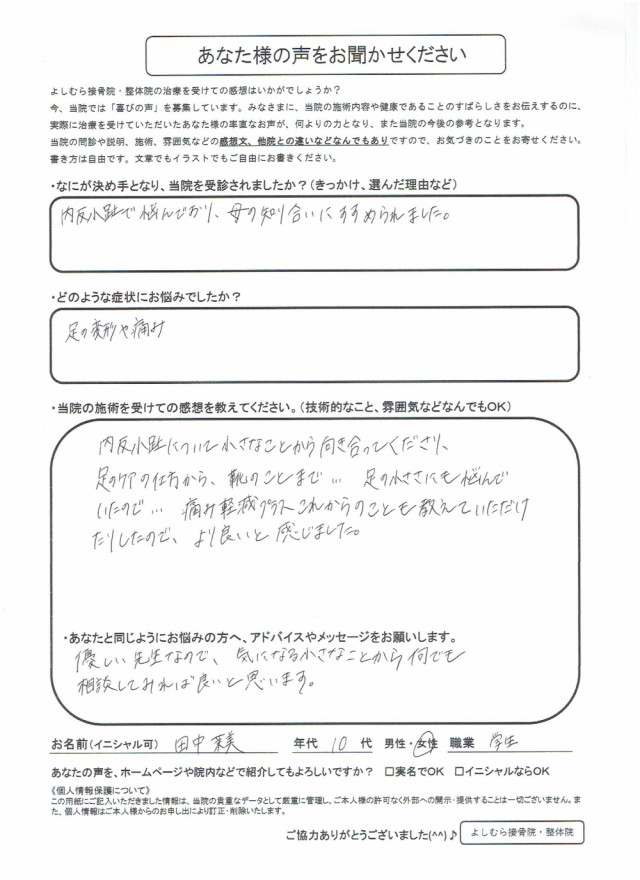 あなた様の声をお聞かせください
よしむら接骨院・整体院の治療を受けての感想はいかがでしょうか？
今、当院では「喜びの声」を募集しています。みなさまに、当院の施術内容や健康であることのすばらしさをお伝えするのに、
実際に治療を受けていただいたあなた様の率直なお声が、何よりの力となり、また当院の今後の参考となります。
当院の問診や説明、施術、雰囲気などの感想文、他院との違いなどなんでもありですので、お気づきのことをお寄せください。
書き方は自由です。文章でもイラストでもご自由にお書きください。
・なにが決め手となり、当院を受診されましたか？（きっかけ、選んだ理由など）
内反小趾で悩んでおり、母の知り合いにすすめられました。
・どのような症状にお悩みでしたか？
足の変形や痛み
・当院の施術を受けての感想を教えてください。（技術的なこと、雰囲気などなんでもOK）
内反小趾について小さなことから向き合ってくださり、
足のケアの仕方から、靴のことまで… 足の小ささにも悩んで
いたので… 痛み軽減プラスこれからのことも教えていただけ
たりしたので、より良いと感じました。
・あなたと同じようにお悩みの方へ、アドバイスやメッセージをお願いします。
優しい先生なので、気になる小さなことから何でも
相談してみれば良いと思います。
お名前（イニシャル可） 田中 美 年代 10 代 男性・女性 職業 学生
あなたの声を、ホームページや院内などで紹介してもよろしいですか？ □実名でOK □イニシャルならOK
《個人情報保護について》
この用紙にご記入いただきました情報は、当院の貴重なデータとして厳重に管理し、ご本人様の許可なく外部への開示・提供することは一切ございません。ま
た、個人情報はご本人様からのお申し出により訂正・削除いたします。
ご協力ありがとうございました(^^)♪ よしむら接骨院・整体院